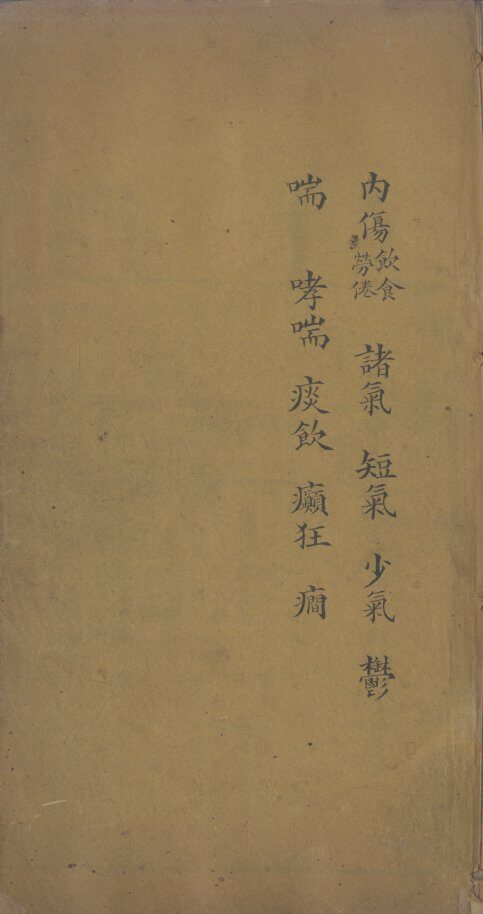 內傷飲食勞倦 諸氣 短氣 少氣 鬱
喘 哮喘 痰飲 癲狂 癎